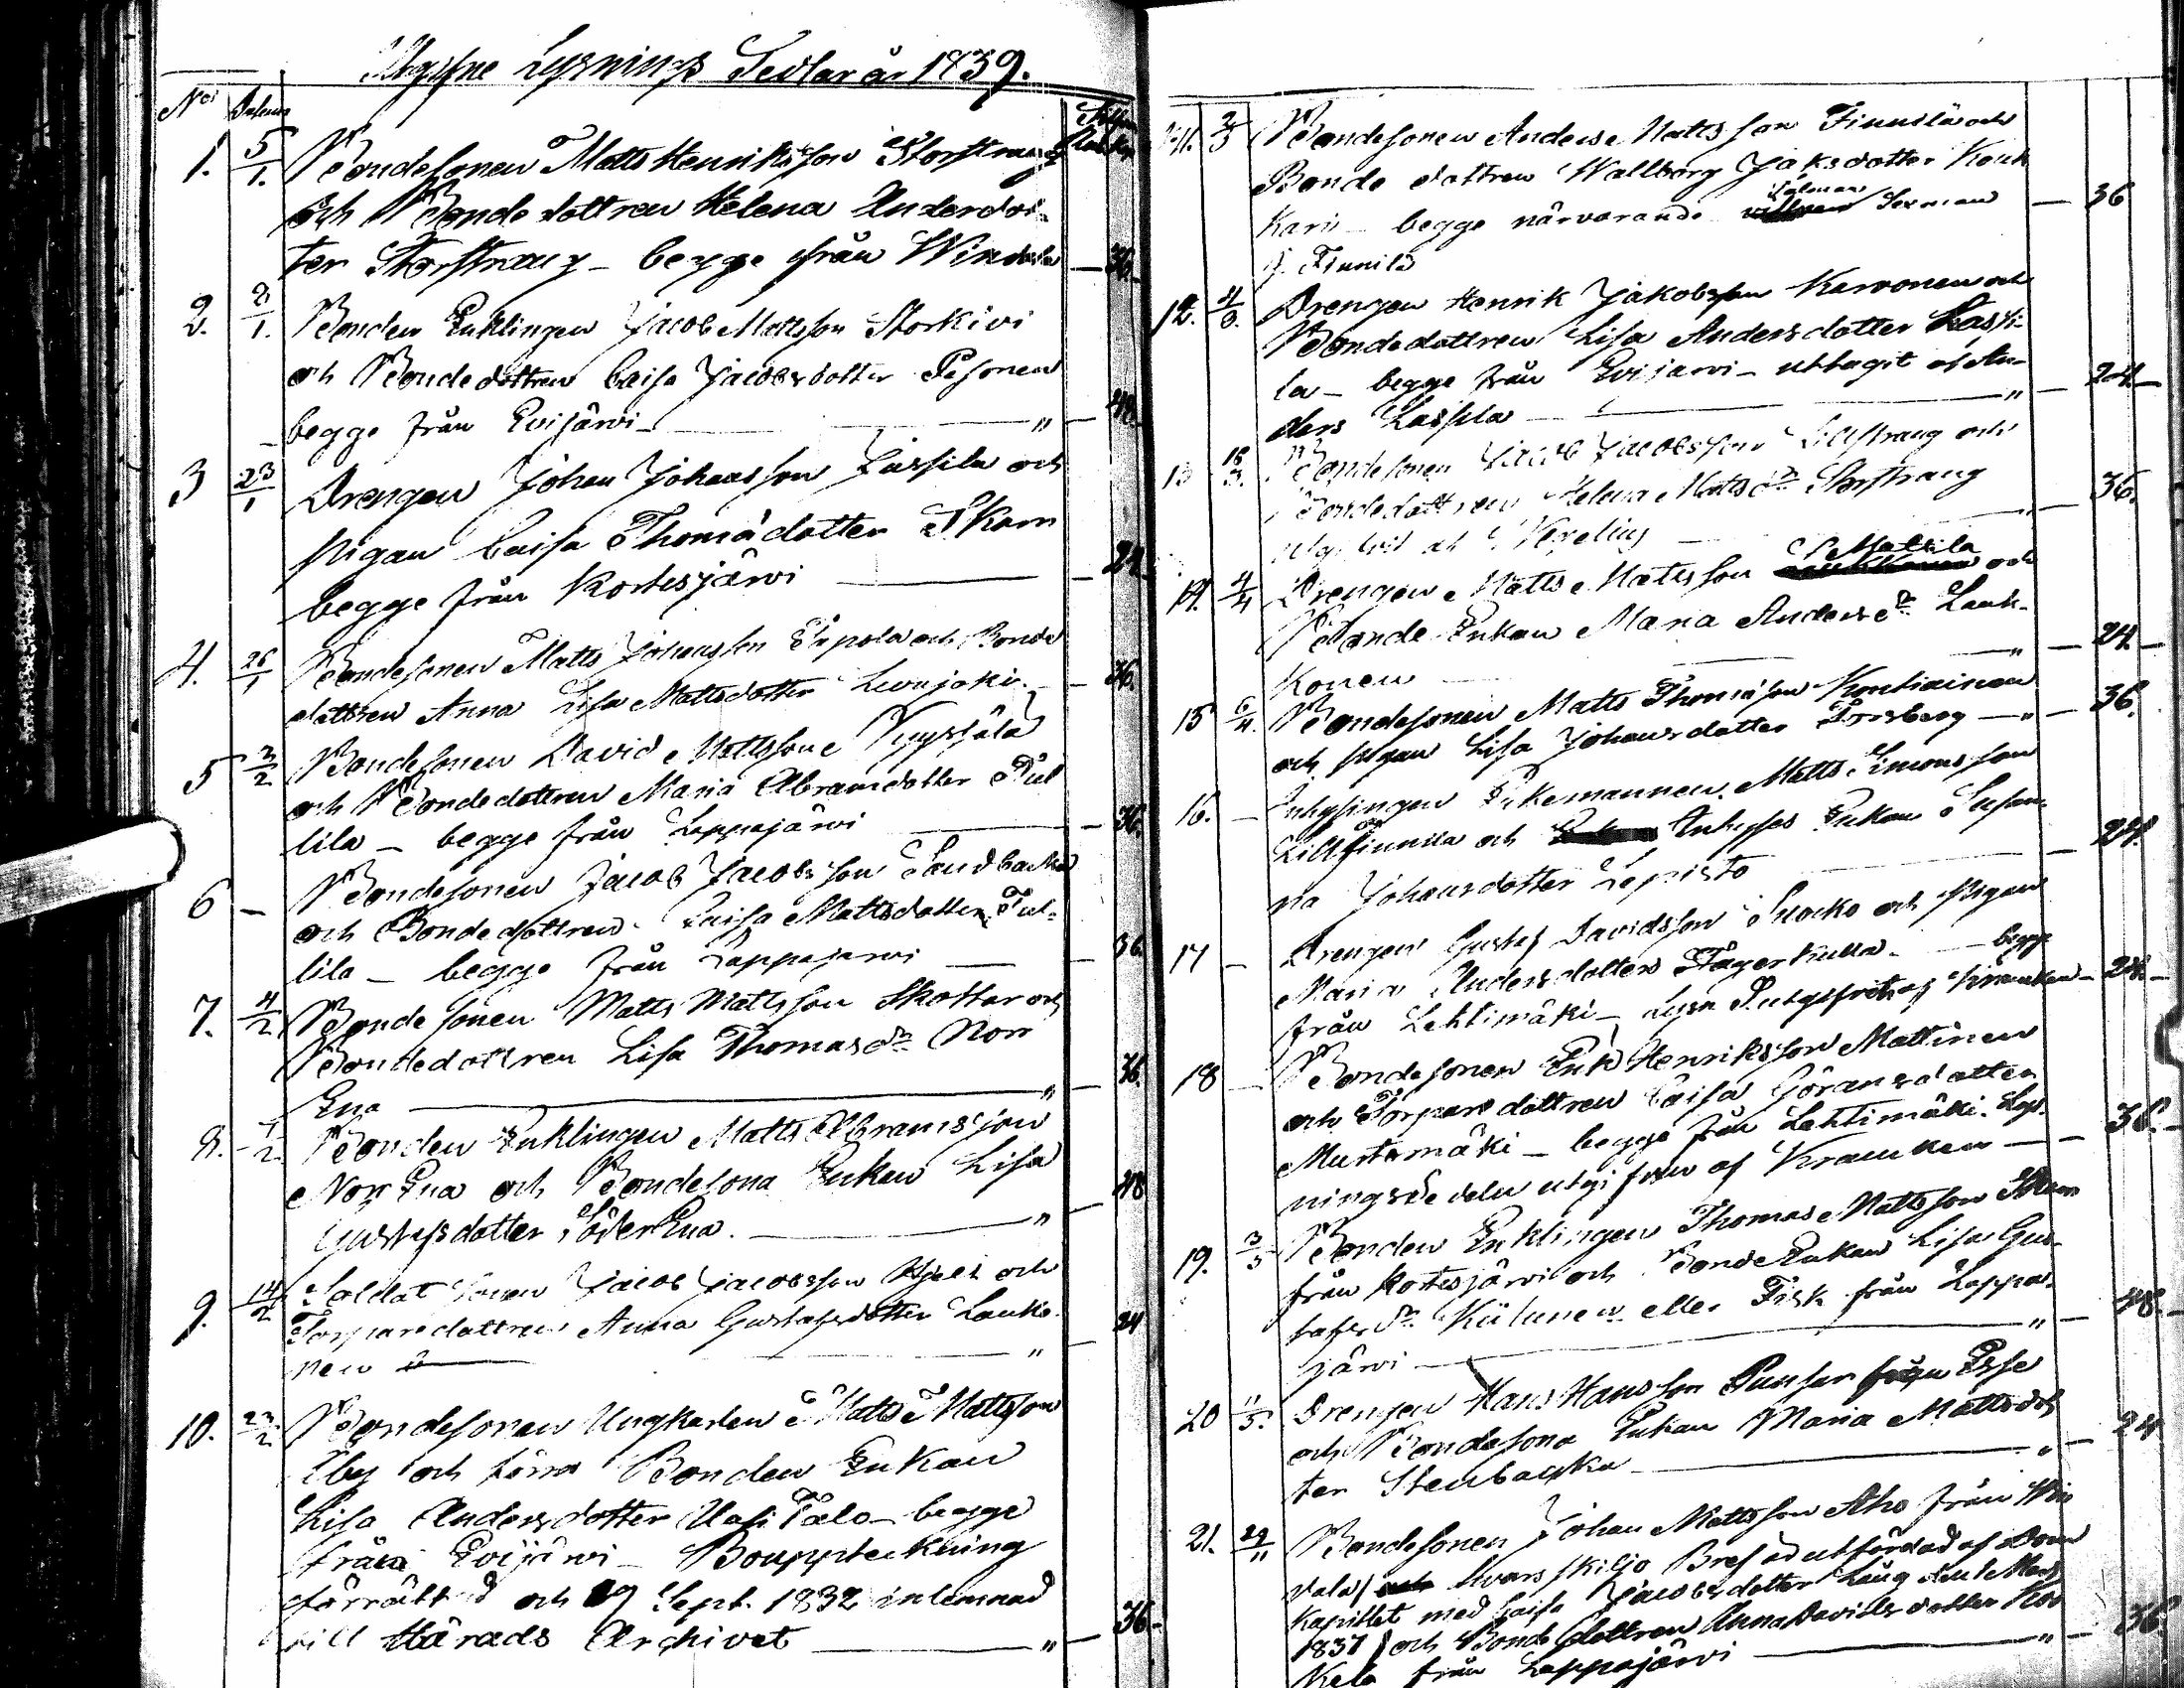 Lysnings Sedlar år 1839.
No Datum
1. 5/1. Bondesonen Matts Henriksson Storstrang
och Bonde dottren Helena Anderdot-
ter Storstrang - begge från Windala - 36.
2. 2/1. Bonden Enklingen Jacob Mattsson Storkivi
och Bondedottren Caisa Jacobsdotter Pesonen
begge från Evijärvi - " - 48.
3 23/1 Drengen Johan Johansson Lassila och
pigan Caisa Thomædotter Skom
begge från Kortesjärvi - 24.
4. 26/1 Bondesonen Matts Johansson och Bonde
dottren Anna Lisa Mattsdotter - 36.
5 3/2 Bondesonen David Mattsson
och Bondedottren Maria Abramsdotter Tul
lila - begge från Lappajärvi - 36.
6 - Bondesonen Jacob Jacobsson Sandbacka
och Bondedottren Caisa Mattsdotter Tul-
lila - begge från Lappajärvi - 36
7. 4/2 Bonde sonen Matts Mattsson Skottar och
Bondedottren Lisa Thomasdr Norr
Ena " - 36.
8. 7/2 Bonden Enklingen Matts Abramsson
Norr Ena och Bondesona Enkan Lisa
Gustafsdotter SöderEna. " 48
9. 14/2 Soldat sonen Jacob Jacobsson Hjelt och
Torparedottren Anna Gustafsdotter Lauko-
nen " 24
10. 23/2 Bondesonen Ungkarlen Matts Mattsson
Åby och förra Bonden Enkan
Lisa Andersdotter UusiTalo - begge
från Evijärvi - Bouppteckning
förrättad och 19 Sept. 1832 inlemnad
till Härads Archivet " - 36.
11. 2/3 Bondesonen Anders Mattsson Finnilä och
Bonde dottren Wallborg Jaksdotter Kouk
Kari - begge närvarande Talman Sexman - 36
J. Finnilä
12. 4/3. Drengen Henrik Jakobsson Karvonen och
Bondedottren Lisa Andersdotter Lassi-
la - begge från Evijärvi - uttagit af An-
ders Lassila " - 24.
13 18/3. Bondesonen Jacob Jacobsson Lillstrang och
Bondedottren Helena Mattsdr Storstrang
Wegelius " 36.
14. 4/4 Drengen Matts Mattsson Mattila och
Bonde Enkan Maria Andersdr Lauk-
konen " - 24.
15 6/4. Bondesonen Matts Thomæson Kontiainen
och pigan Lisa Johansdotter Forsberg - " - 36.
16. - Inhysingen Enkemannen Matts Simonsson
Lillfinnila och Inhyses Enkan Susan-
na Johansdotter Lepistö 24.
17 - Drengen Gustaf Davidsson och Pigan
Maria Andersdotter Fagerkulla - begge
från Lehtimäki - Lysn Sutgifvits af Kramken - 24.
18 - Bondesonen Erik Henriksson Mattinen
och Torparedottren Caisa Göransdotter
Mustamäki - begge från Lehtimäki. Lys-
ningssedeln utgifven af Kramken - 36.
19. 3/5 Bonden Enklingen Thomas Mattsson
från Kortesjärvi och BondeEnkan Lisa Gus-
tafsdr Kiilunen eller Fisk från Lappa-
järvi " 48.
20 11/5. Drengen Hans Hansson Punsar från Esse
och Bondesona Enkan Maria Mattsdot
ter Stenbacka " - 24
21. 29/11 Bondesonen Johan Mattsson Aho från Win
dala / hvars skiljo Bref är utfärdad af Dom
kapitlet med Caisa Jacobsdotter Lång den 1 Mars
1837 / och Bonde dottren Anna Davidsdotter Kos
kela från Lappajärvi " - 36